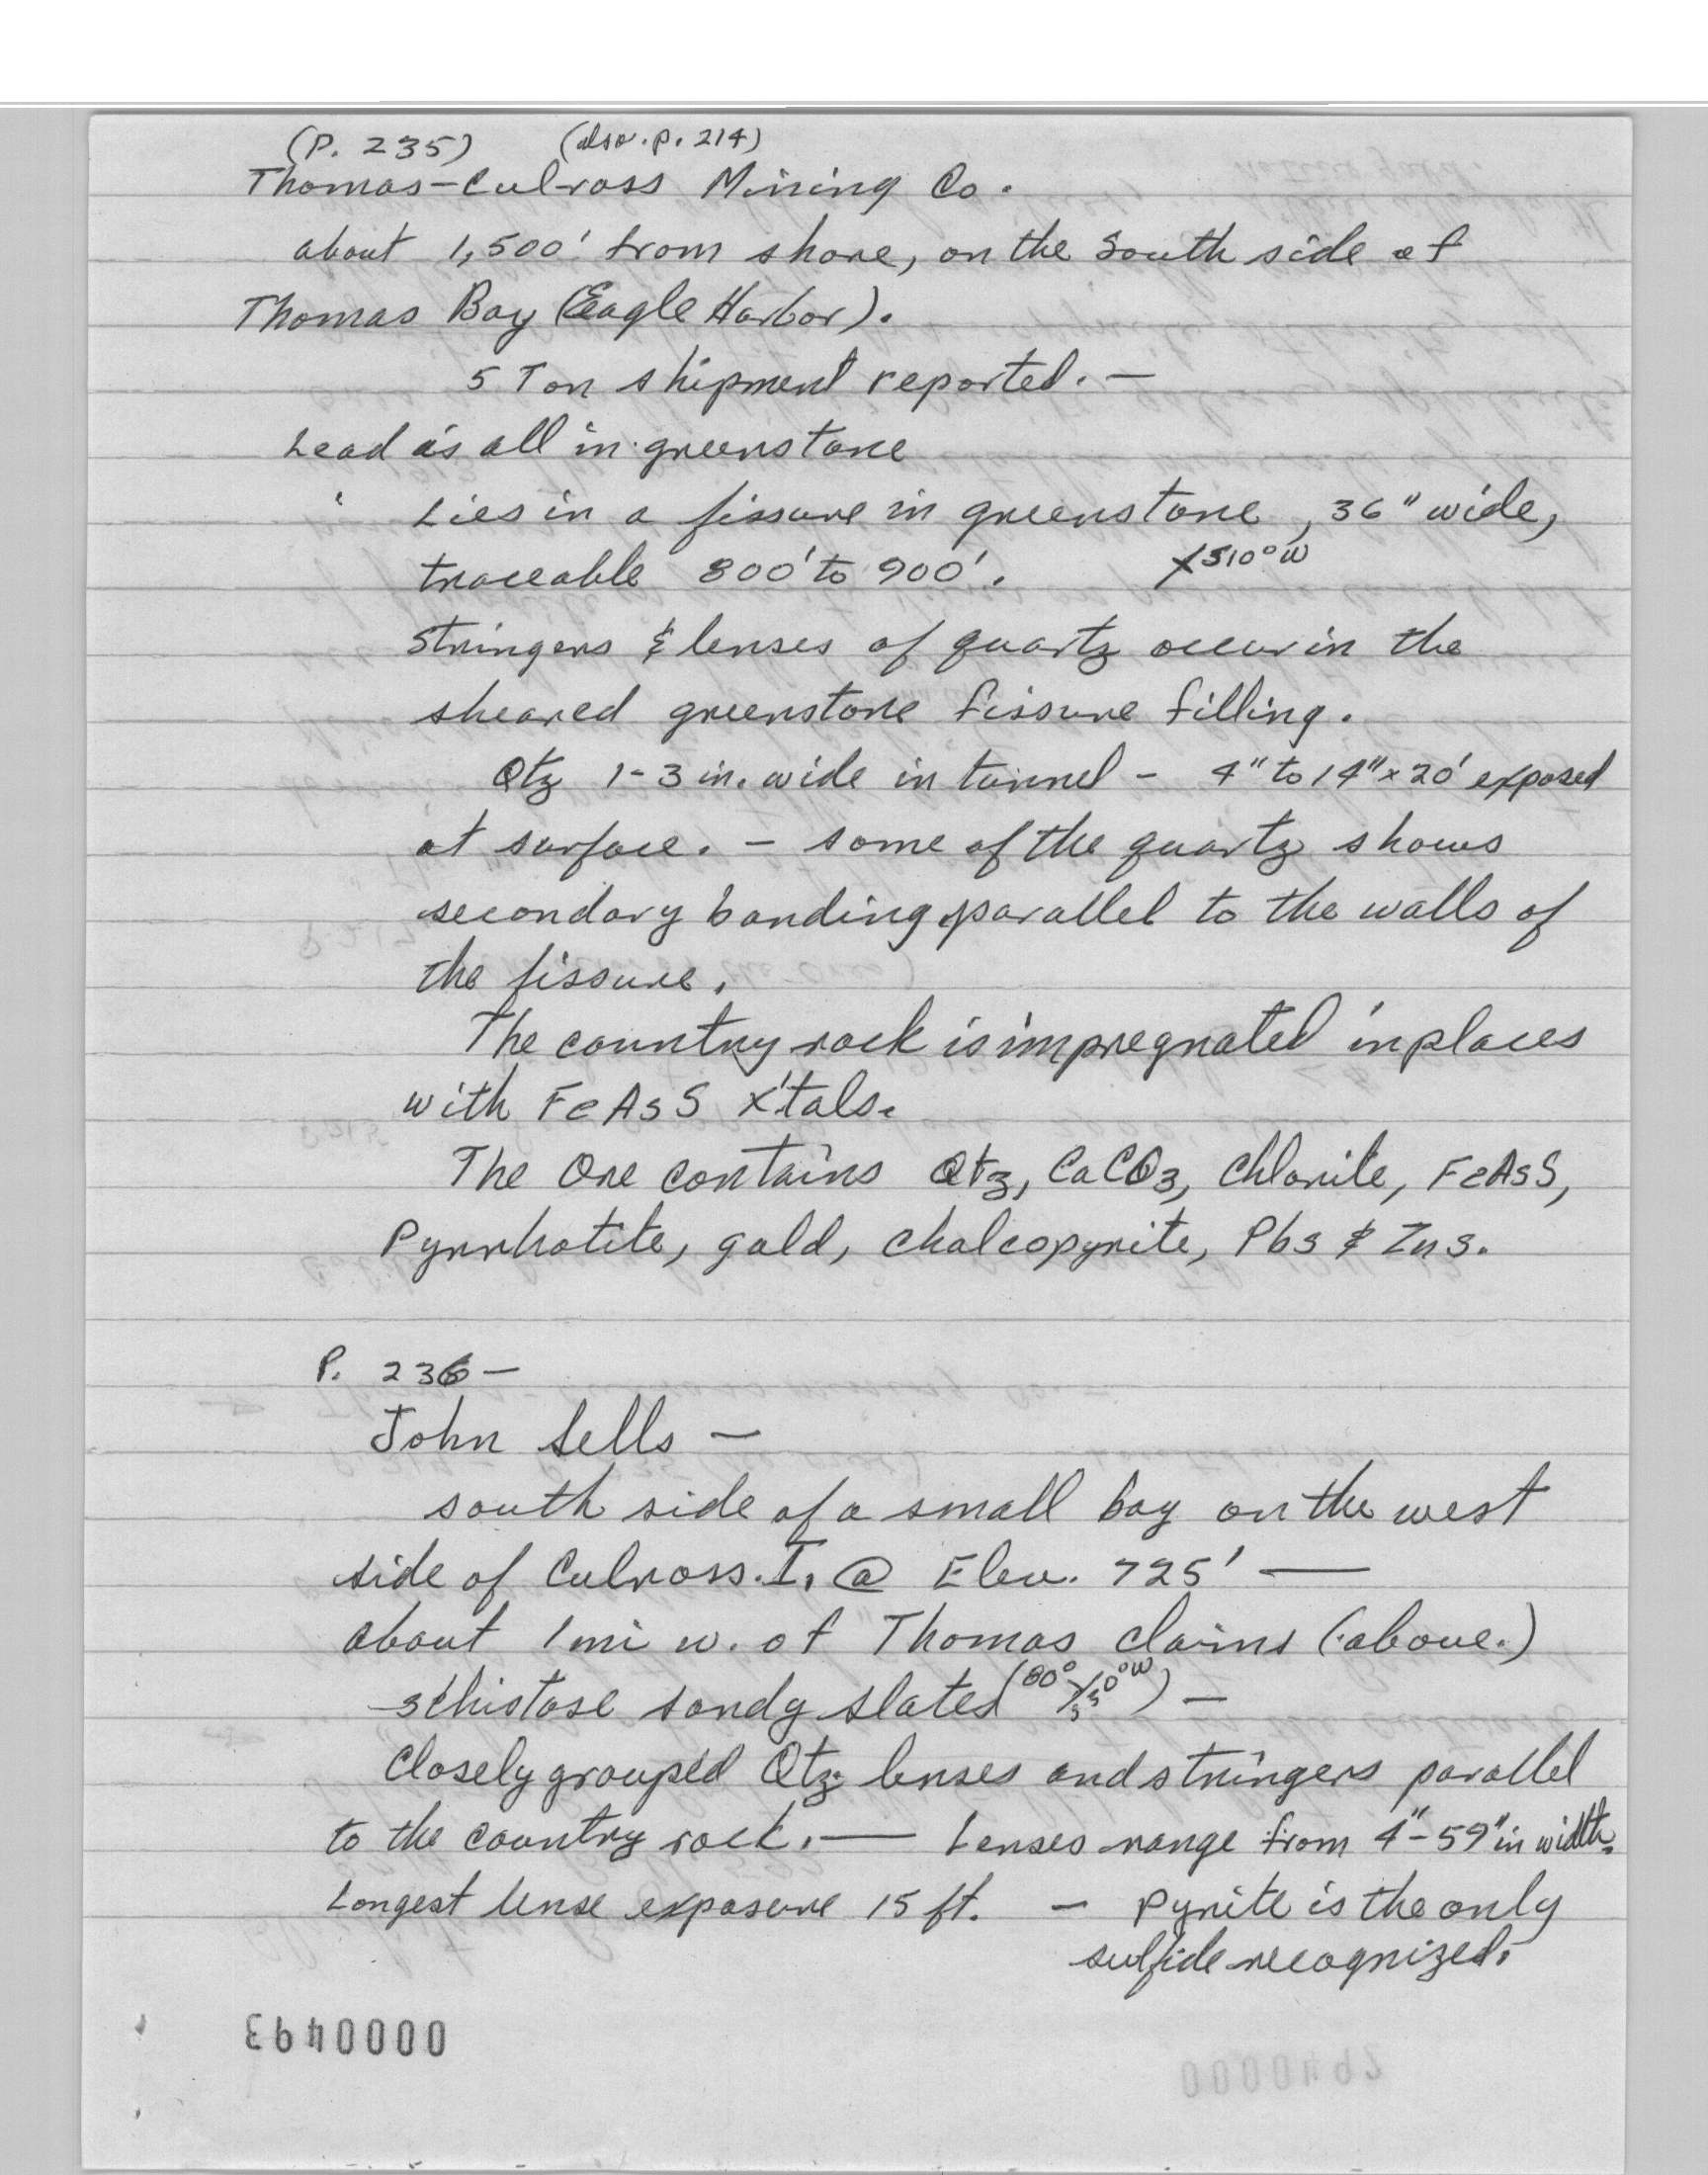 (P. 235) (also. p. 214)
Thomas-Culross Mining Co.
about 1,500' from shore, on the South side of
Thomas Bay (Eagle Harbor).
5 Ton shipment reported. —
Lead is all in greenstone
Lies in a fissure in greenstone, 36" wide,
traceable 800' to 900'. S10°W
Stringers & lenses of quartz occur in the
sheared greenstone fissure filling.
Qtz 1-3 in. wide in tunnel - 4" to 14" x 20' exposed
at surface. - some of the quartz shows
secondary banding parallel to the walls of
the fissure.
The country rock is impregnated in places
with FeAsS x'tals.
The Ore contains Qtz, CaCO3, chlorite, FeAsS,
Pyrrhotite, gold, chalcopyrite, PbS & ZnS.
P. 236 —
John Sells —
south side of a small bay on the west
side of Culross. I. @ Elev. 725' —
about 1 mi w. of Thomas claims (above.)
schistose sandy slates (80° °W) —
Closely grouped Qtz lenses and stringers parallel
to the country rock. — Lenses range from 4" - 59" in width.
Longest lense exposure 15 ft. — Pyrite is the only
sulfide recognized.
0000493